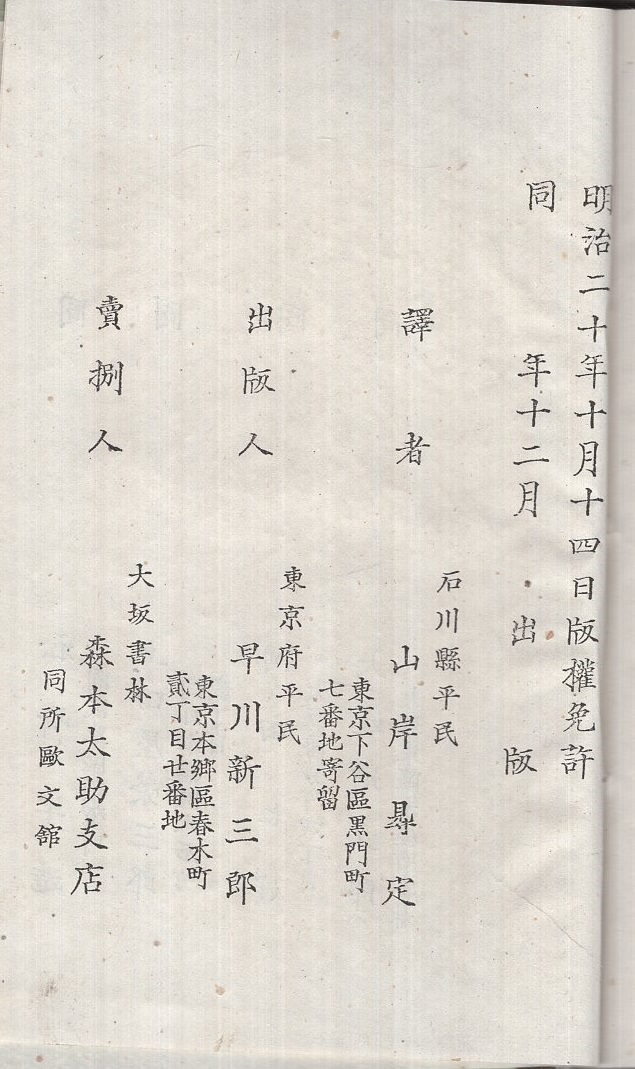 明治二十年十月十四日版權免許
同 年十二月 出版
石川縣平民
譯者 山岸 定
東京下谷區黒門町
七番地寄留
東京府平民
出版人 早川新三郎
東京本郷區春木町
貳丁目廿番地
大坂書林
賣捌人 森本太助支店
同所歐文舘